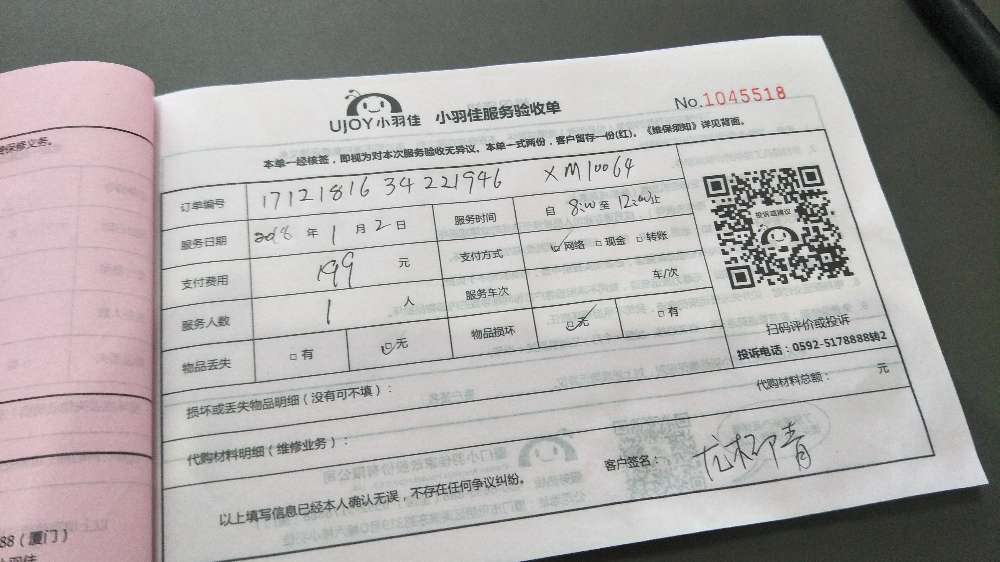 UJOY小羽佳 小羽佳服务验收单 No.1045518
本单一经核签，即视为对本次服务验收无异议。本单一式两份，客户留存一份(红)。《维保须知》详见背面。
订单编号 1712181634221946 XM10064
服务日期 2018年1月2日 服务时间 自8:00至12:00止
支付费用 199元 支付方式 网络 现金 转账
服务人数 1人 服务车次 车/次
物品丢失 有 无 物品损坏 无 有
投诉或建议
扫码评价或投诉
投诉电话：0592-5178888转2
损坏或丢失物品明细（没有可不填）：
代购材料明细（维修业务）： 代购材料总额： 元
以上填写信息已经本人确认无误，不存在任何争议纠纷。 客户签名：
保修义务。
88（厦门）
小羽佳